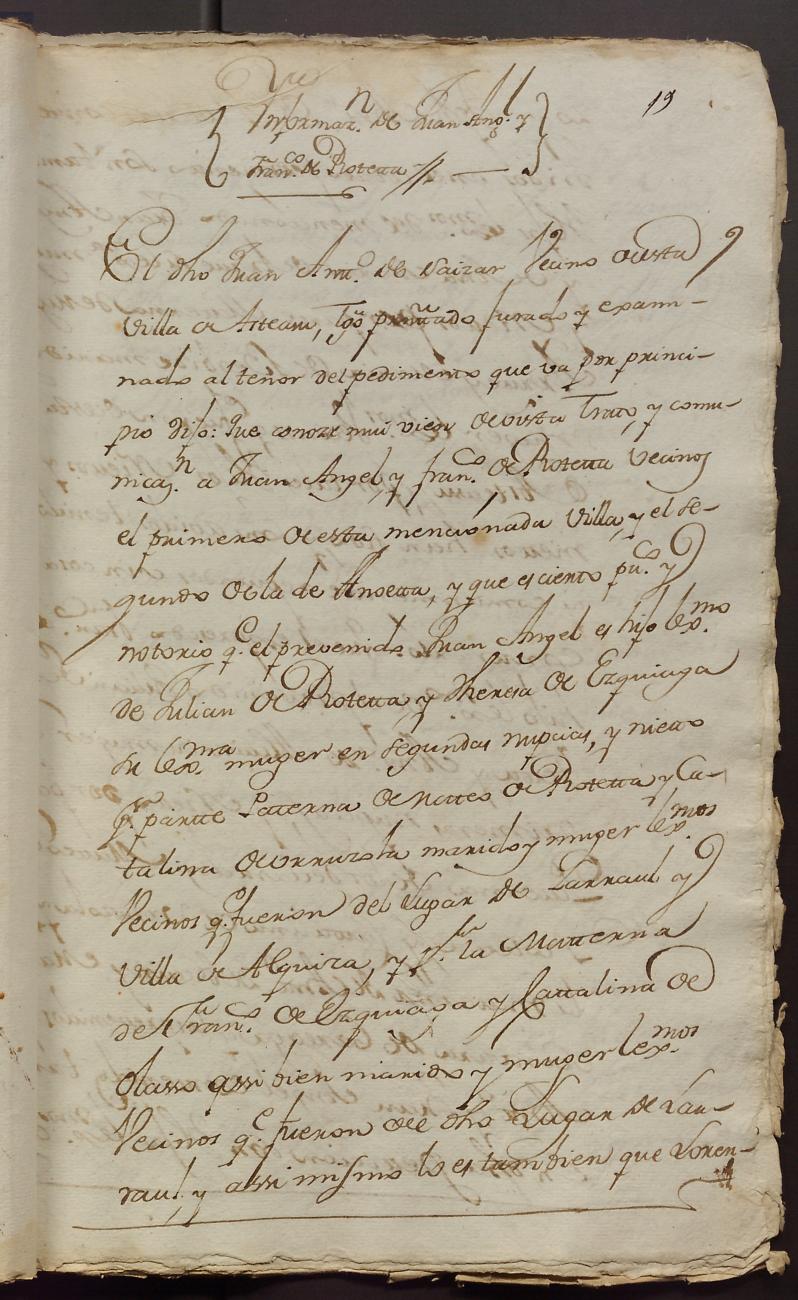 19
Informaz.n de Juan Ang.l y
Fran.co de Rotetta //
El dho Juan Ant.o de Saizar Vecino de esta
Villa de Asteasu, tgo presentado jurado y exami-
nado al tenor del pedimento que va por princi-
pio dijo: Que conoze mui vien de vista Trato, y comu-
nicaz.n a Juan Angel, y fran.co de Rotetta Vecinos
el primero de esta mencionada Villa, y el se-
gundo de la de Anoetta, y que es cierto pu.co y
notorio q.e el prevenido Juan Angel es hijo lex.mo
de Julian de Rotetta, y Theresa de Ezquiaga
su lex.ma muger en segundas nupcias, y nieto
p.r partte Patterna de Matteo de Rotetta y Ca-
talina de urruzola marido y muger lex.mos
Vecinos q.e fueron del Lugar de Larraul y
Villa de Alquiza, y p.r la Matterna
de Fran.co de Ezquiaga y Cattalina de
olasso assi bien marido y muger lex.mos
Vecinos q.e fueron de el dho Lugar de Lar-
raul, y assi mismo lo es tambien que Loren-